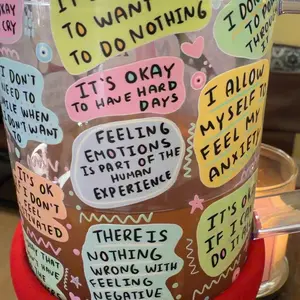 OKAY
CRY
TO WANT
TO DO NOTHING
I DON'T
TO
I DON'T
NEED TO
WHEN
DON'T WANT
TO
IT'S OKAY
TO HAVE HARD
DAYS
I ALLOW
MYSELF TO
FEEL MY
ANXIETY
FEELING
EMOTIONS
IS PART OF THE
HUMAN
EXPERIENCE
IT'S OK
IF I DON'T
FEEL
IT'S OK
IF I CAN
DO IT
THERE IS
NOTHING
WRONG WITH
FEELING
NEGATIVE
THAT
HAVE
THE